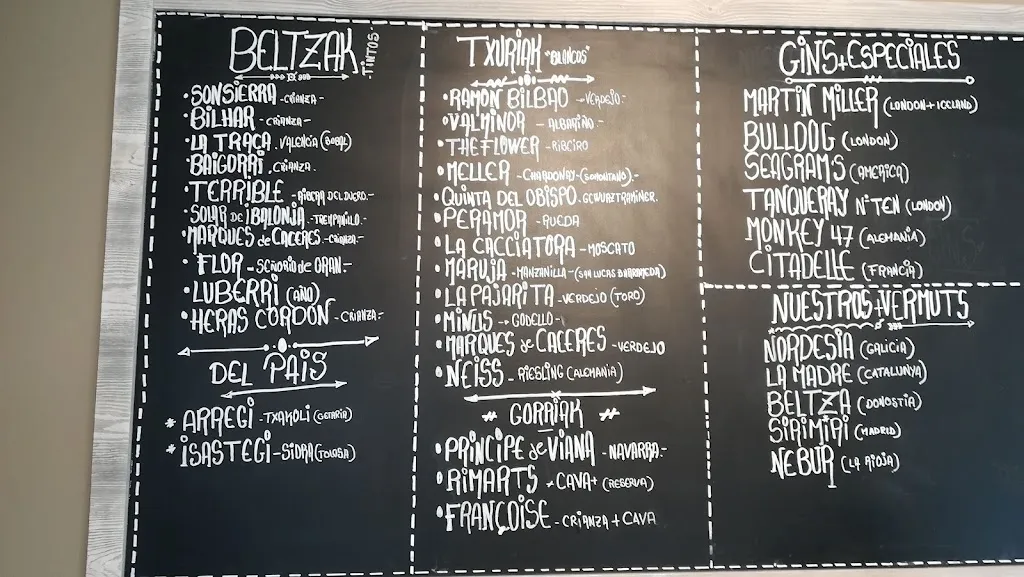 BELTZAK TINTOS
• SONSIERRA - CRIANZA -
• BILHAR - CRIANZA -
• LA TRACA . VALENCIA (BOBAL)
• BAIGORRI . CRIANZA
• TERRIBLE - RIBERA DEL DUERO -
• SOLAR DE IBALONJA - TREMPANILLO -
• MARQUES de CACERES - CRIANZA -
• FLOR - SEÑORIO DE ORAN -
• LUBERRI (AÑO)
• HERAS CORDON - CRIANZA -
DEL PAIS
* ARREGI - TXAKOLI (GETARIA)
* ISASTEGI - SIDRA (TOLOSA)
TXURIAK "BLANCOS"
• RAMON BILBAO - VERDEJO -
• VALMINOR - ALBARIÑO -
• THEFLOWER - RIBEIRO
• MELLER - CHARDONAY - (SOMONTANO) -
• QUINTA DEL OBISPO . GEWURZTRAMINER.
• PERAMOR - RUEDA
• LA CACCIATORA - MOSCATO
• MARUJA - MANZANILLA - (SAN LUCAS BARRAMEDA)
• LA PAJARITA - VERDEJO (TORO)
• MINIUS - GODELLO -
• MARQUES de CACERES - VERDEJO
• NEISS - RIESLING (ALEMANIA)
# GORRIAK #
• PRINCIPE de VIANA - NAVARRA -
• RIMARTS + CAVA + (RESERVA)
• FRANÇOISE - CRIANZA + CAVA
GINS + ESPECIALES
MARTIN MILLER (LONDON + ICELAND)
BULLDOG (LONDON)
SEAGRAMS (AMERICA)
TANQUERAY NºTEN (LONDON)
MONKEY 47 (ALEMANIA)
CITADELLE (FRANCIA)
NUESTROS + VERMUTS
NORDESIA (GALICIA)
LA MADRE (CATALUNYA)
BELTZA (DONOSTIA)
SIRIMIRI (MADRID)
NEBUR (LA RIOJA)